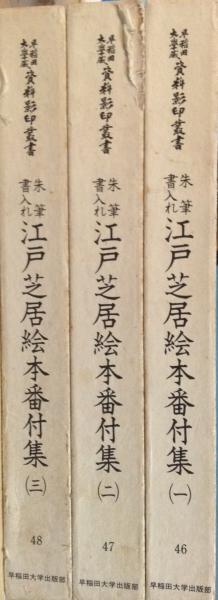 早稲田大學蔵 資料影印叢書
朱筆書入れ 江戸芝居絵本番付集 (一)
46
早稲田大学出版部
早稲田大學蔵 資料影印叢書
朱筆書入れ 江戸芝居絵本番付集 (二)
47
早稲田大学出版部
早稲田大學蔵 資料影印叢書
朱筆書入れ 江戸芝居絵本番付集 (三)
48
早稲田大学出版部